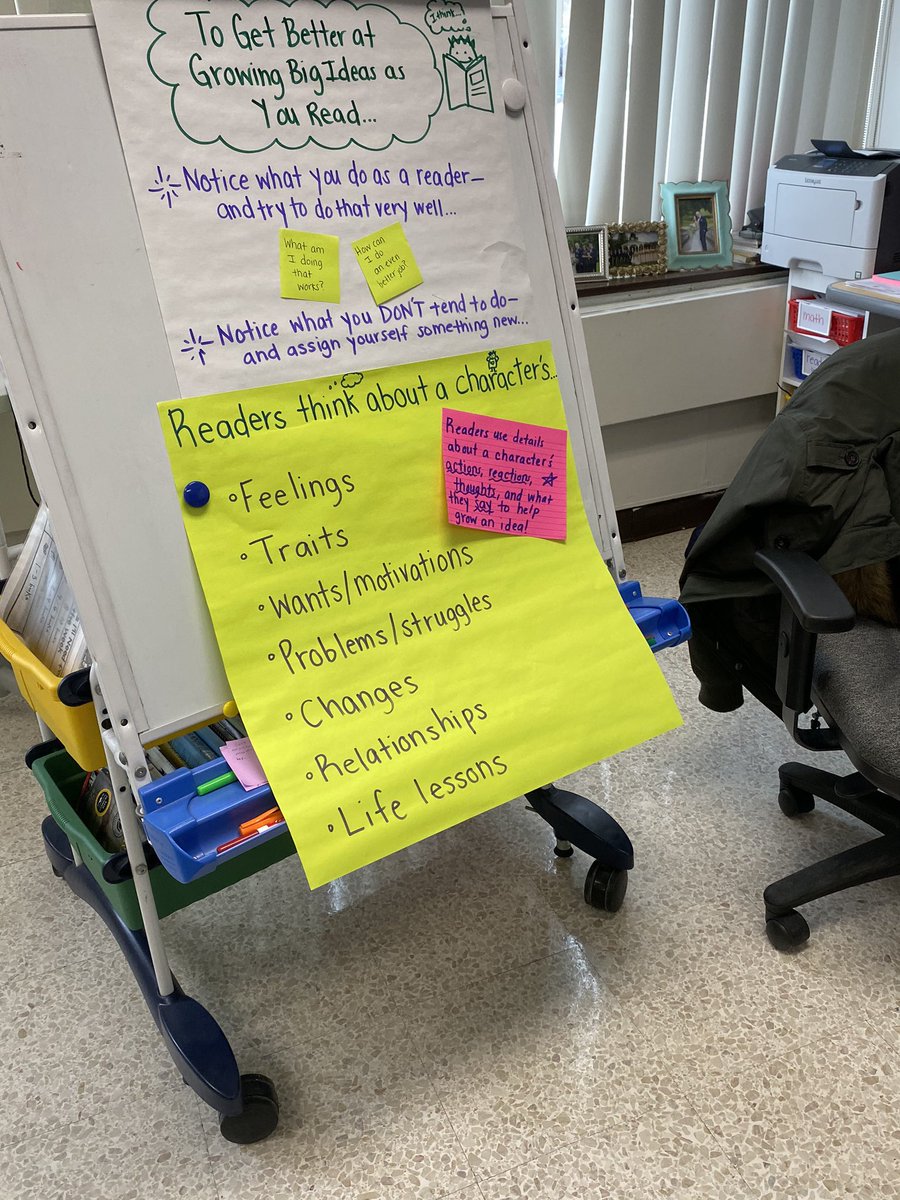 I think...
To Get Better at
Growing Big Ideas as
You Read...
Notice what you do as a reader—
and try to do that very well...
What am
I doing
that
works?
How can
I do
an even
better job?
Notice what you DON'T tend to do—
and assign yourself something new...
Readers think about a character's...
Readers use details
about a character's
actions, reactions,
thoughts, and what
they say to help
grow an idea!
• Feelings
• Traits
• Wants/motivations
• Problems/struggles
• Changes
• Relationships
• Life lessons
LEXMARK
math